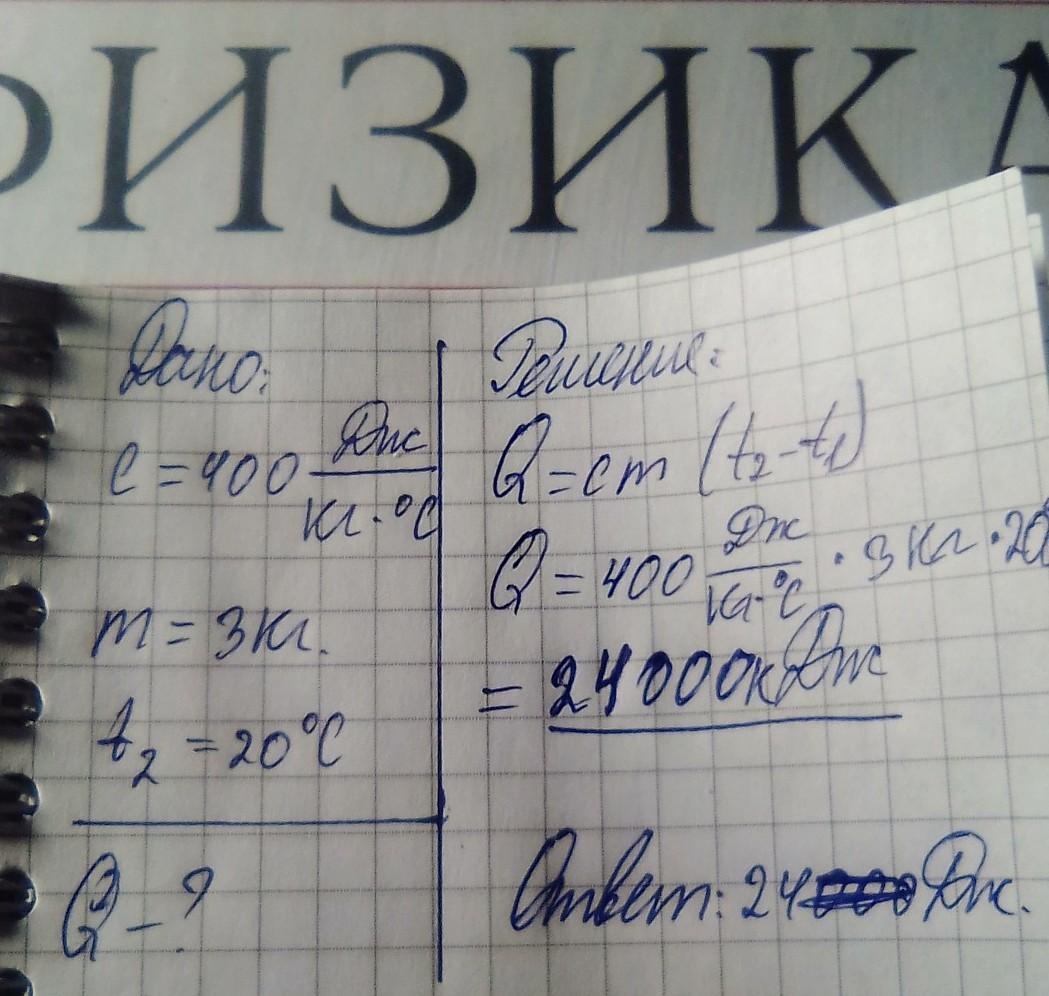 ФИЗИКА
Дано:
c = 400 Дж/кг·°C
m = 3 кг.
t₂ = 20°C
Q – ?
Решение:
Q = cm (t₂ – t₁)
Q = 400 Дж/кг·°C · 3 кг · 20
= 24000кДж
Ответ: 24 Дж.